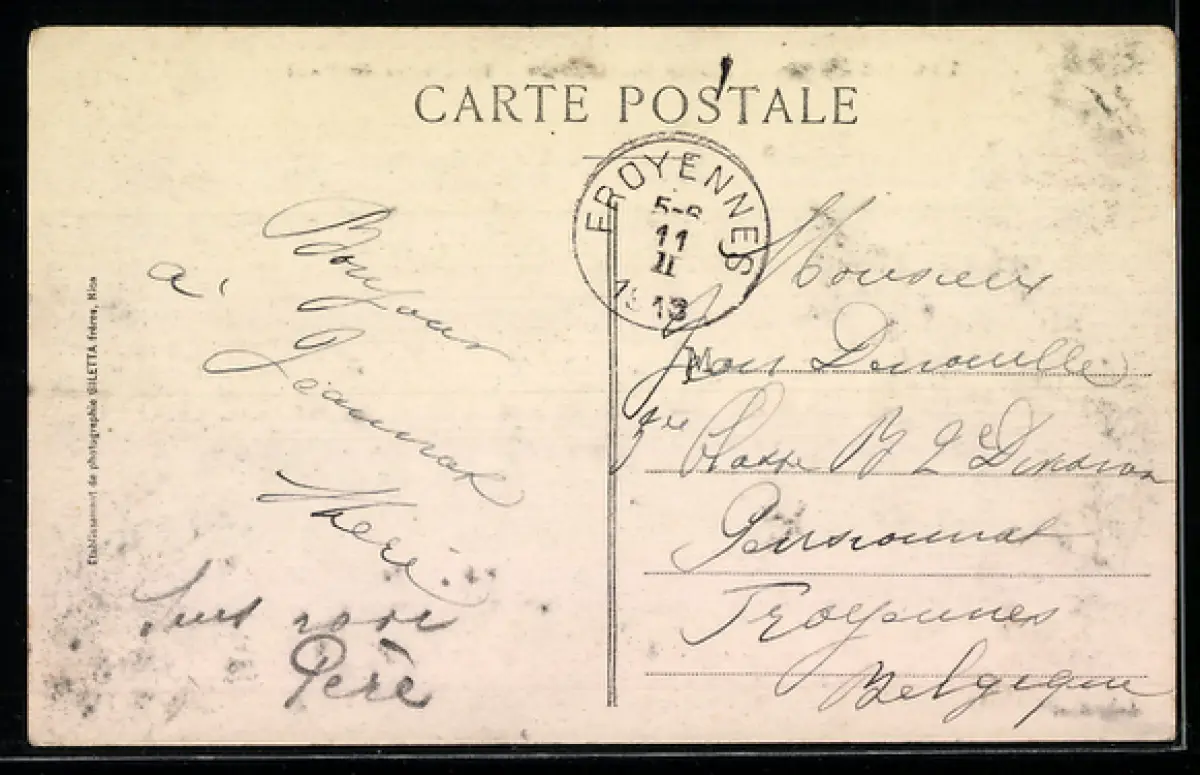 CARTE POSTALE
FROYENNES
5-6
11
II
1913
Etablissement de photographie GILETTA frères, Nice
Bonjour
a'
Jeannot
Père
Monsieur
Jean
1re Classe B 2e Division
Pensionnat
Froyennes
Belgique